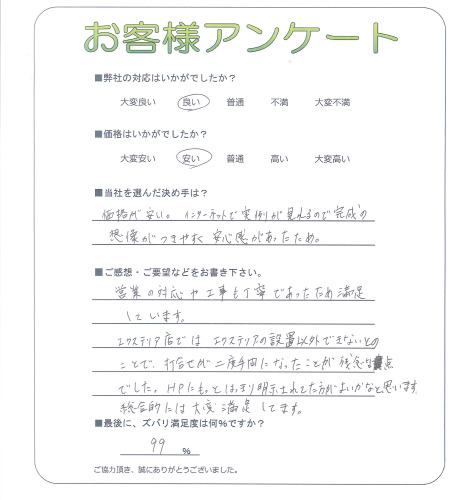 お客様アンケート
■弊社の対応はいかがでしたか？
大変良い 良い 普通 不満 大変不満
■価格はいかがでしたか？
大変安い 安い 普通 高い 大変高い
■当社を選んだ決め手は？
価格が安い。インターネットで実例が見れるので完成の
想像がつきやすく安心感があったため。
■ご感想・ご要望などをお書き下さい。
営業の対応や工事も丁寧であったため満足
しています。
エクステリア店では エクステリアの設置以外できないとの
ことで、打合せが二度手間になったことが残念な点
でした。HPにもっとはっきり明示されてた方がよいかなと思います
総合的には大変満足してます。
■最後に、ズバリ満足度は何%ですか？
99 %
ご協力頂き、誠にありがとうございました。